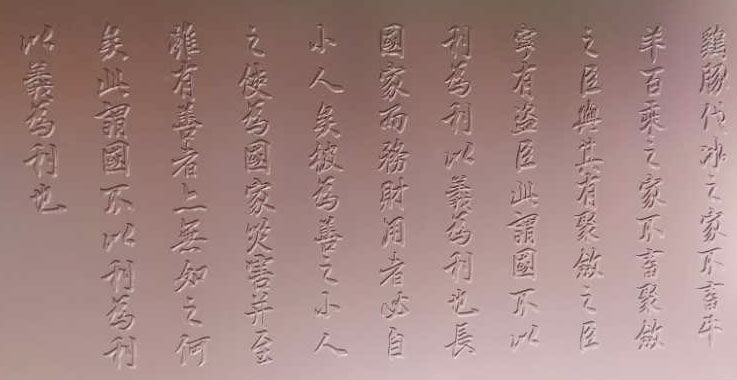 雞豚伐冰之家不畜牛
羊百乘之家不畜聚斂
之臣與其有聚斂之臣
寧有盜臣此謂國不以
利為利以義為利也長
國家而務財用者必自
小人矣彼為善之小人
之使為國家災害并至
雖有善者亦無如之何
矣此謂國不以利為利
以義為利也